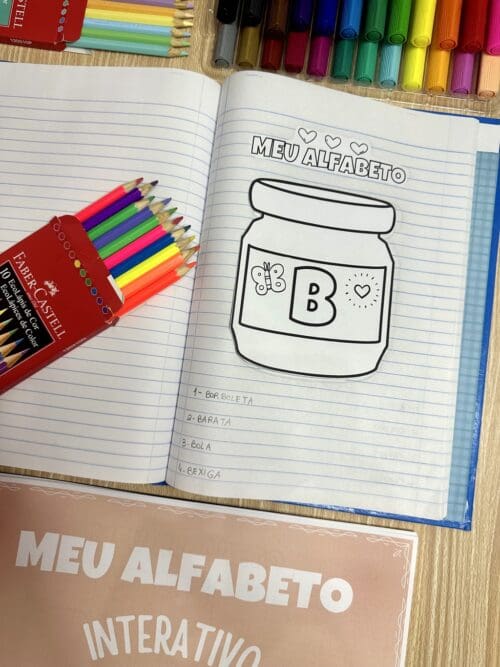 MEU ALFABETO
B
1- BORBOLETA
2- BARATA
3- BOLA
4. BEXIGA
FABER-CASTELL
10 EcoLápis de Cor
EcoLápices de Color
MEU ALFABETO
INTERATIVO